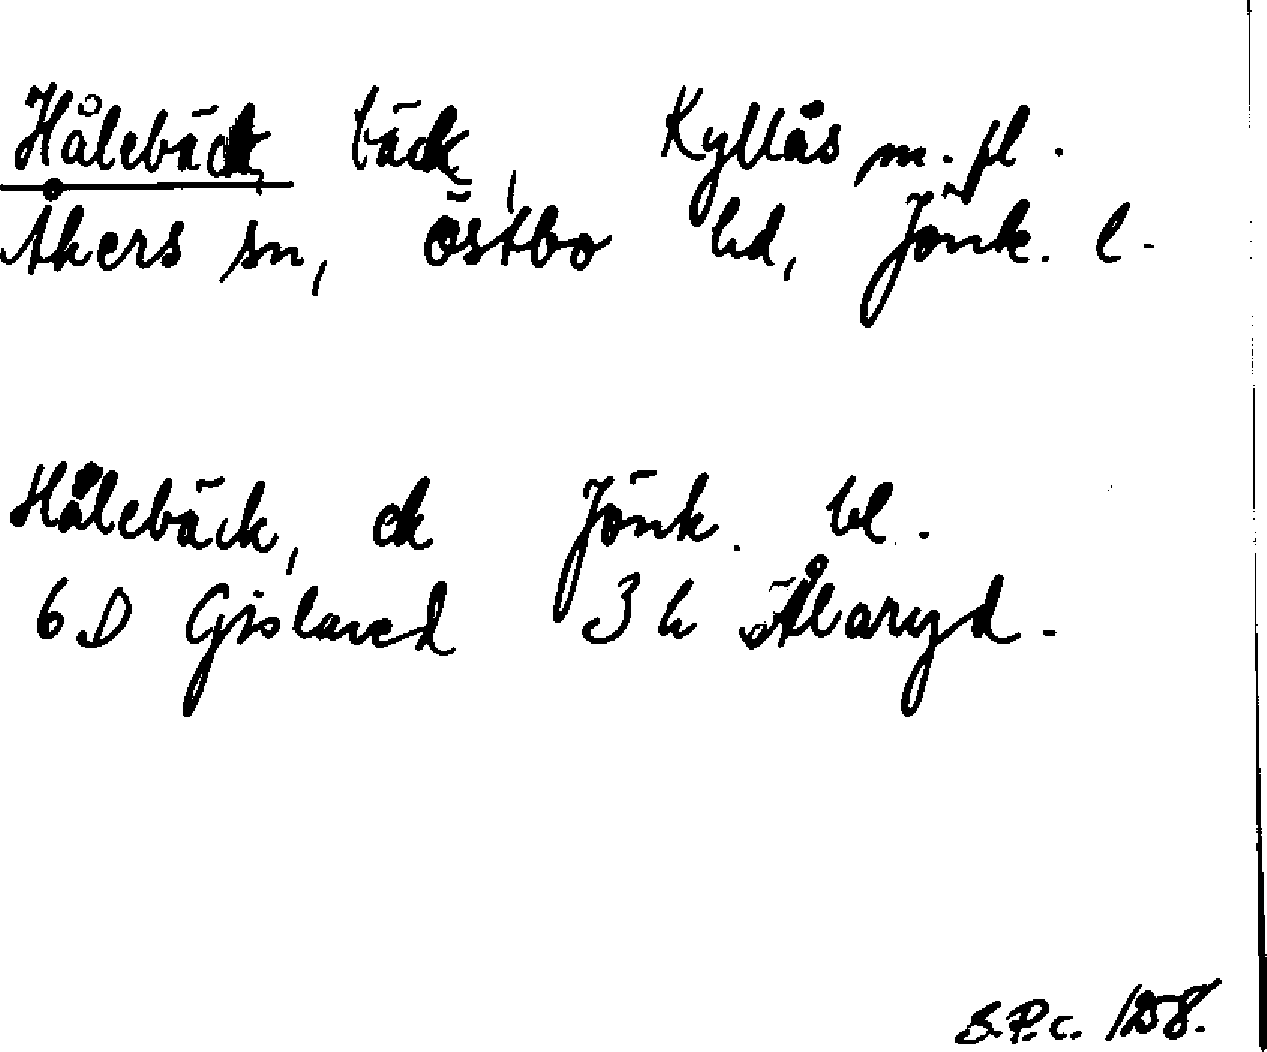 Hålebäck, bäck, Kyllås m. fl.
Åkers sn, Östbo hd, Jönk. l.
Hålebäck, ek Jönk. bl.
6D Gislaved 3h Åbaryd.
S.P.c. 1258.